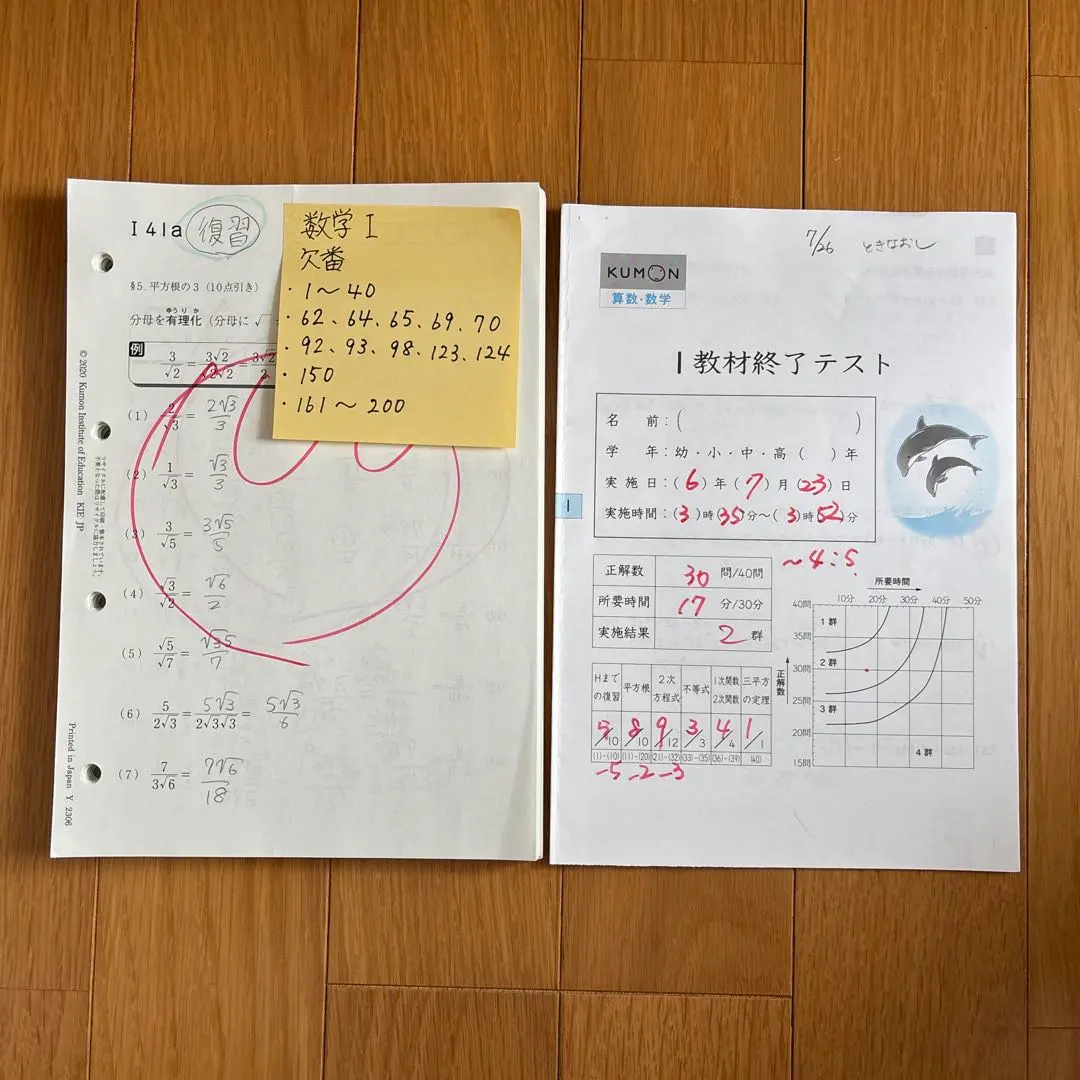 I 41a 復習
§5. 平方根の3 (10点引き)
ゆうりか
分母を有理化 (分母に √
例 3/√2 = 3√2/√2√2 = 3√2/2
(1) 2/√3 = 2√3/3
(2) 1/√3 = √3/3
(3) 3/√5 = 3√5/5
(4) √3/√2 = √6/2
(5) √5/√7 = √35/7
(6) 5/2√3 = 5√3/2√3√3 = 5√3/6
(7) 7/3√6 = 7√6/18
© 2020 Kumon Institute of Education KIE JP
Printed in Japan Y 2306
数学 I
欠番
・1〜40
・62、64、65、69、70
・92、93、98、123、124
・150
・161〜200
7/26 ときなおし
KUMON
算数・数学
I 教材終了テスト
名 前:( )
学 年:幼・小・中・高 ( ) 年
実 施 日:(6) 年 (7) 月 (23) 日
実施時間:(3) 時 (35) 分〜(3) 時 (52) 分
I
〜4:5
正解数 30 問/40問
所要時間 17 分/30分
実施結果 2 群
所要時間
10分 20分 30分 40分 50分
正解数
40問
35問
30問
25問
20問
15問
1群
2群
3群
4群
Hまでの復習 平方根 2次方程式 不等式 1次関数 2次関数 三平方の定理
5/10 8/10 9/12 3/3 4/4 1/1
(1)-(10) (11)-(20) (21)-(32) (33)-(35) (36)-(39) (40)
-5 -2 -3